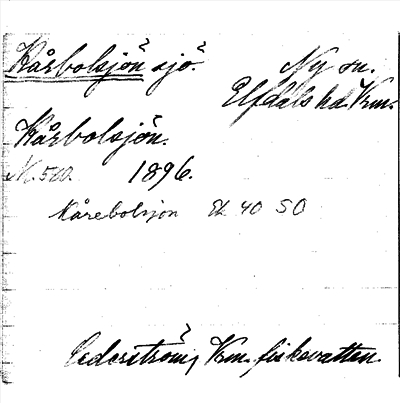 Kårbolsjön sjö.
Ny sn.
Elfdals hd. Krm.
Kårbolsjön.
N. 500. 1896.
Kårebolsjön Ek 40 SO
Cederström, Krm. fiskevatten.